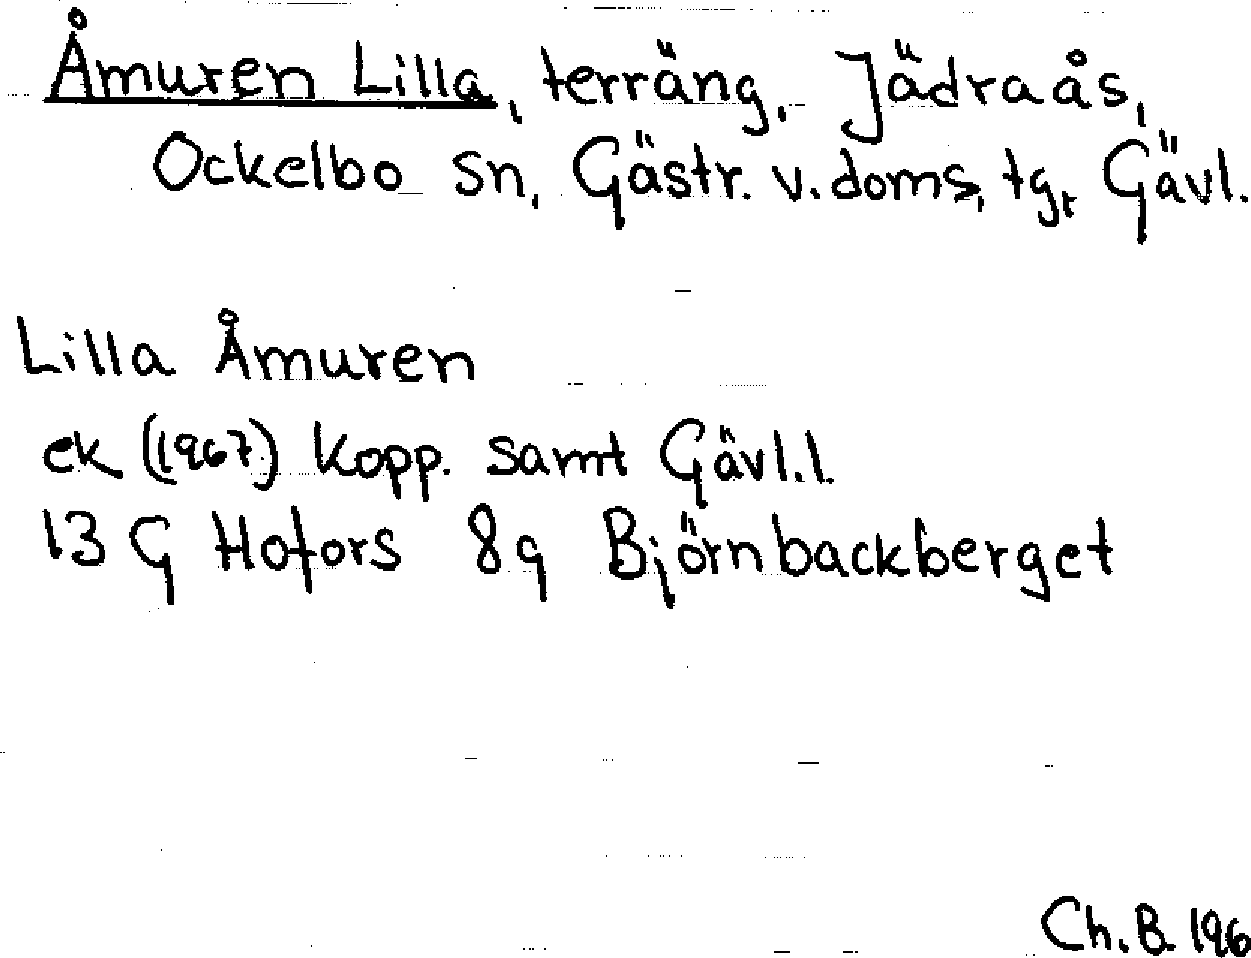 Åmuren Lilla, terräng, Jädraås,
Ockelbo sn, Gästr. v. doms, tg, Gävl.
Lilla Åmuren
ek (1967) Kopp. samt Gävl.l.
13 G Hofors 8g Björnbackberget
Ch. B. 196